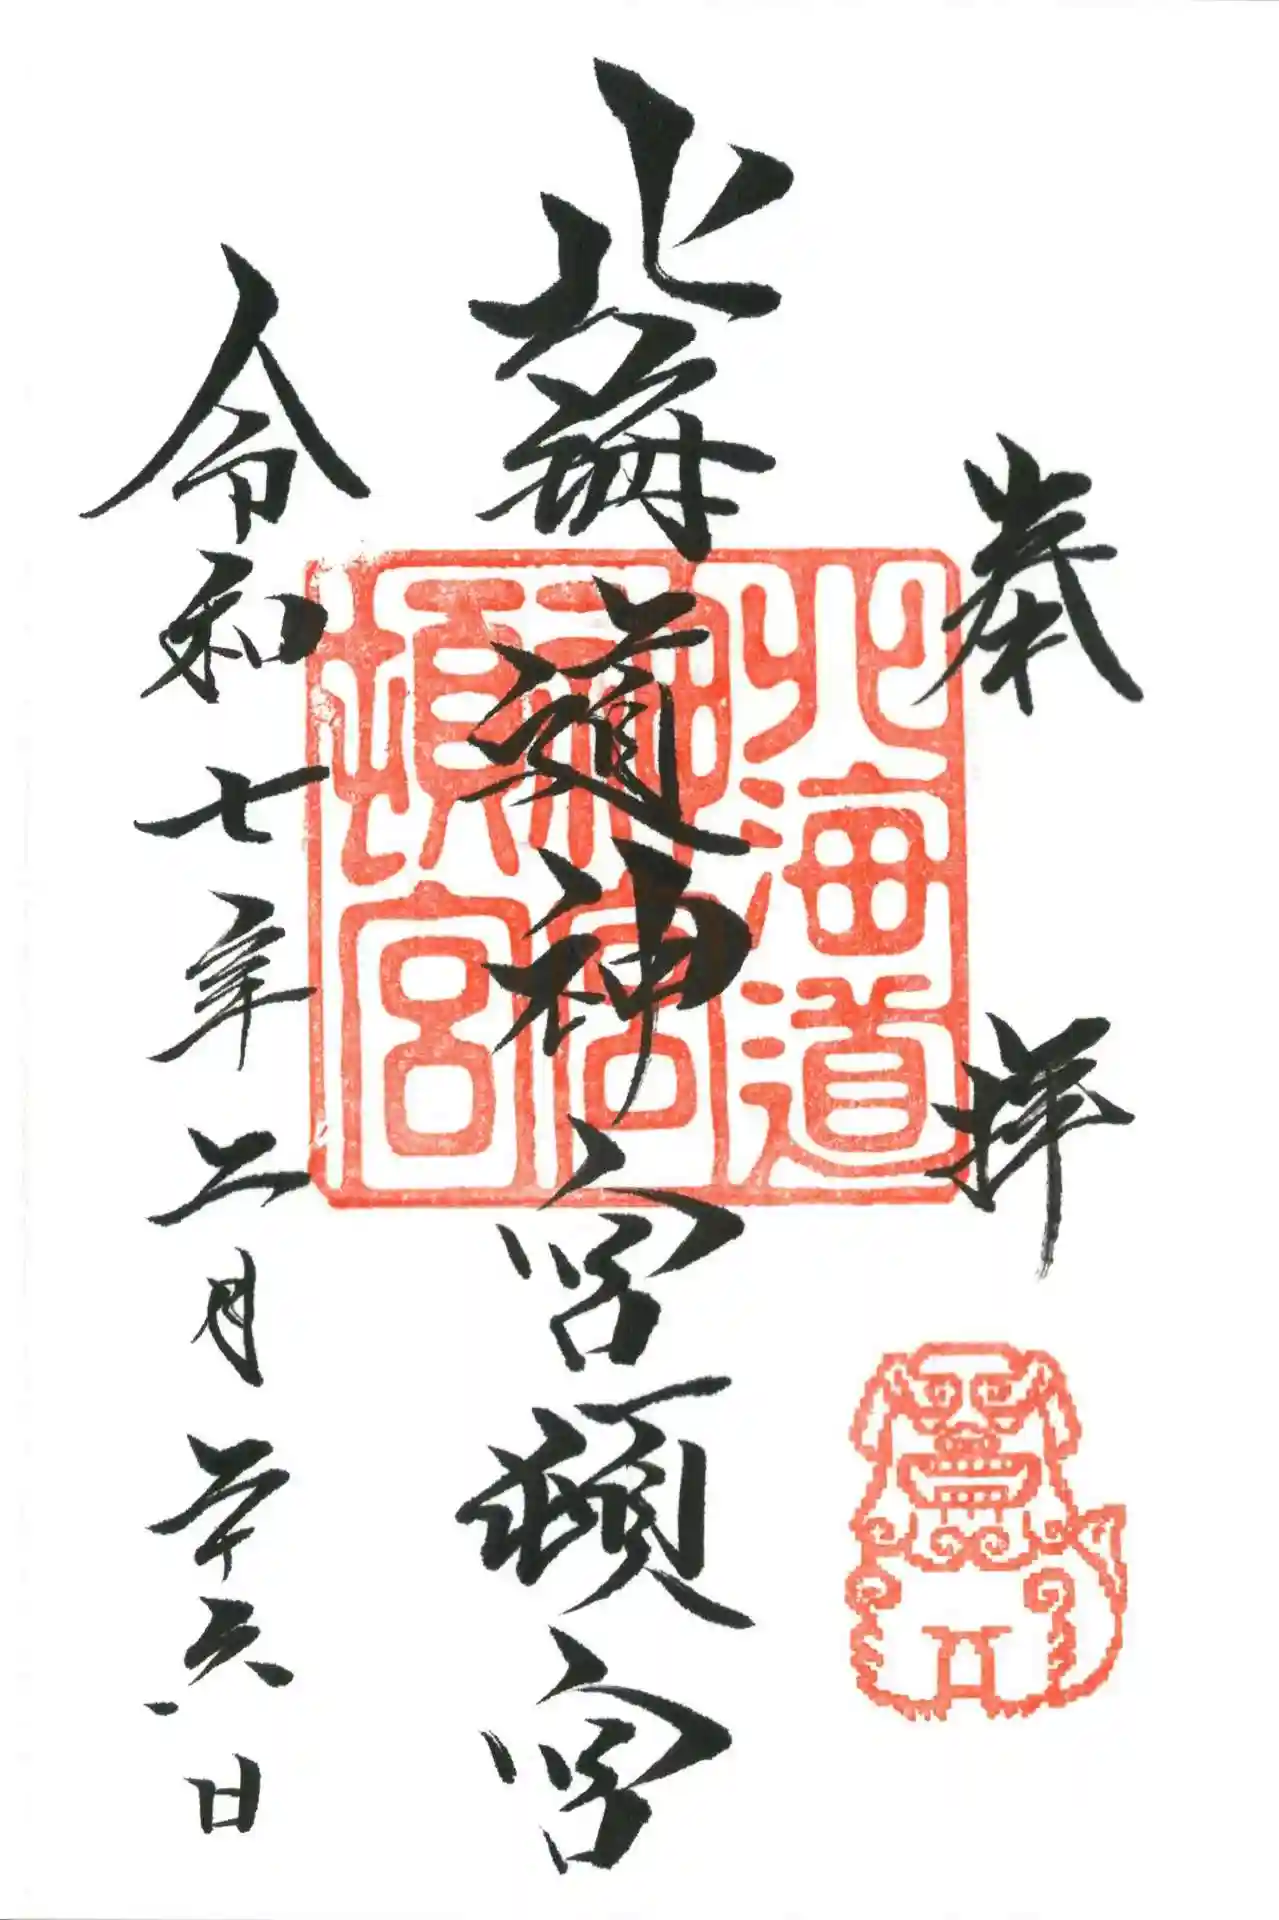 奉拝
北海道神宮頓宮
令和七年二月二十六日
北海道
神宮
頓宮